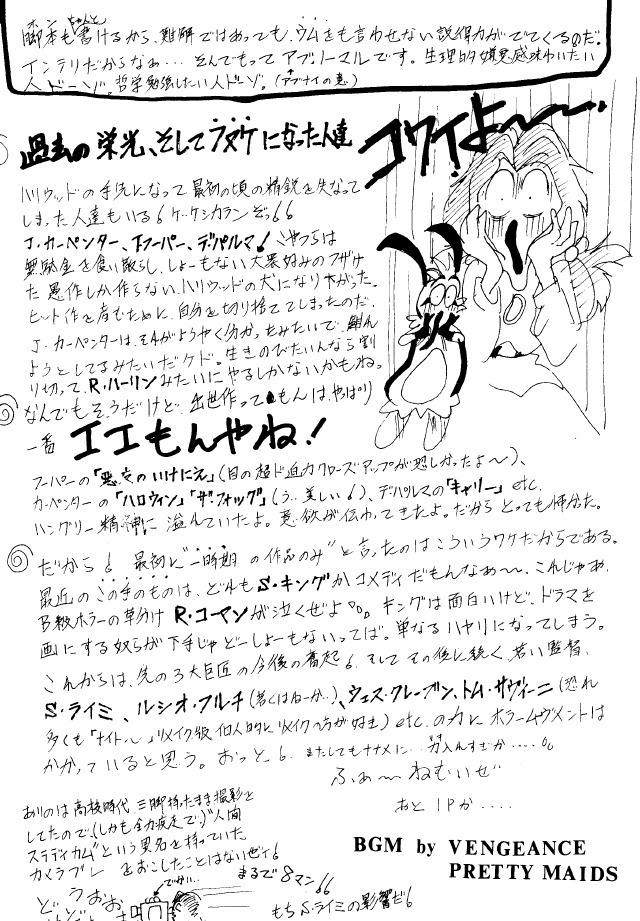 ホン ちゃんと
脚本も書けるから、難解ではあっても、ウムをも言わせない説得力がでてくるのだ。
インテリだからなぁ… そんでもってアブノーマルです。生理的嫌悪感味わいたい
人ドーゾ。哲学勉強したい人ドーゾ。(アブナイの意)
コワイよ〜〜
過去の栄光、そしてフヌケになった人達
ハリウッドの手先になって最初の頃の精鋭を失なって
しまった人達もいる! ケ・ケシカランぞっ!!
J・カーペンター、T・フーパー、デパルマ! こやつらは
無駄金を食い散らし、しょーもない大衆好みのフザけ
た悪作しか作らない、ハリウッドの犬になり下がった。
ヒット作を産むために、自分を切り捨ててしまったのだ。
J・カーペンターは、それがようやく分かったみたいで、
ようとしてるみたいだケド。生きのびたいんなら割
り切って、R・ハーリンみたいにやるしかないかもね。
なんでもそうだけど、出世作ってもんは、やっぱり
一番 エエもんやね!
フーパーの「悪魔のいけにえ」(目の超ド迫力クローズアップが恐しかったよ〜)、
カーペンターの「ハロウィン」「ザ・フォッグ」(う…美しい!)、デパルマの「キャリー」etc.
ハングリー精神に溢れていたよ。意欲が伝わってきたよ。だからとっても好かった。
だから! 最初に"一時期の作品のみ"と言ったのはこういうワケだからである。
最近のこの手のものは、どれもS・キングかコメディだもんなあ〜、これじゃあ、
B級ホラーの草分けR・コーマンが泣くぜよ。キングは面白いけど、ドラマを
画にする奴らが下手じゃどーしょーもないってば。単なるハヤリになってしまう。
これからは、先の3大巨匠の今後の奮起!、そしてその後に続く、若い監督、
S・ライミ、ルシオ・フルチ(若くはねーか…)、ウェス・クレーブン、トム・サヴィーニ(恐れ
多くも「ナイト〜」リメイク版 個人的にリメイクの方が好き) etc. の力にホラームヴメントは
かかっていると思う。おっと! またしてもナナメに…力入んすぎか……。
ふぁ〜ねむいぜ
あと1Pか….
ありのは高校時代、三脚持ったまま撮影と
してたので、(しかも全力疾走で)"人間
ステディカム"という異名を持っていた。
カメラブレ をおこしたことはないぜィ!
まるで8マン!!
もちS・ライミの影響だ!
どうおお
BGM by VENGEANCE
PRETTY MAIDS